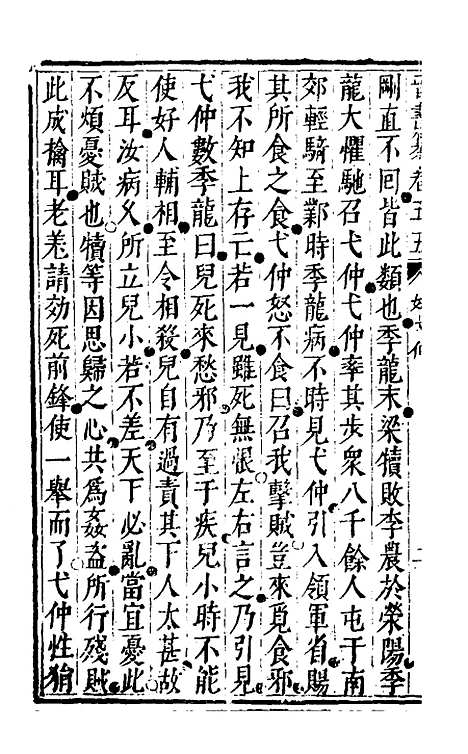 剛直不回皆此類也季龍末梁犢敗李農於滎陽季
龍大懼馳召弋仲弋仲率其步衆八千餘人屯于南
郊輕騎至鄴時季龍病不時見弋仲引入領軍省賜
其所食之食弋仲怒不食曰召我擊賊豈來覓食邪
我不知上存亡若一見雖死無恨左右言之乃引見
弋仲數季龍曰兒死來愁邪乃至于疾兒小時不能
使好人輔相至令相殺兒自有過責其下人太甚故
反耳汝病久所立兒小若不差天下必亂當宜憂此
不煩憂賊也犢等因思歸之心共爲姦盗所行殘賊
此成擒耳老羌請効死前鋒使一舉而了弋仲性狷